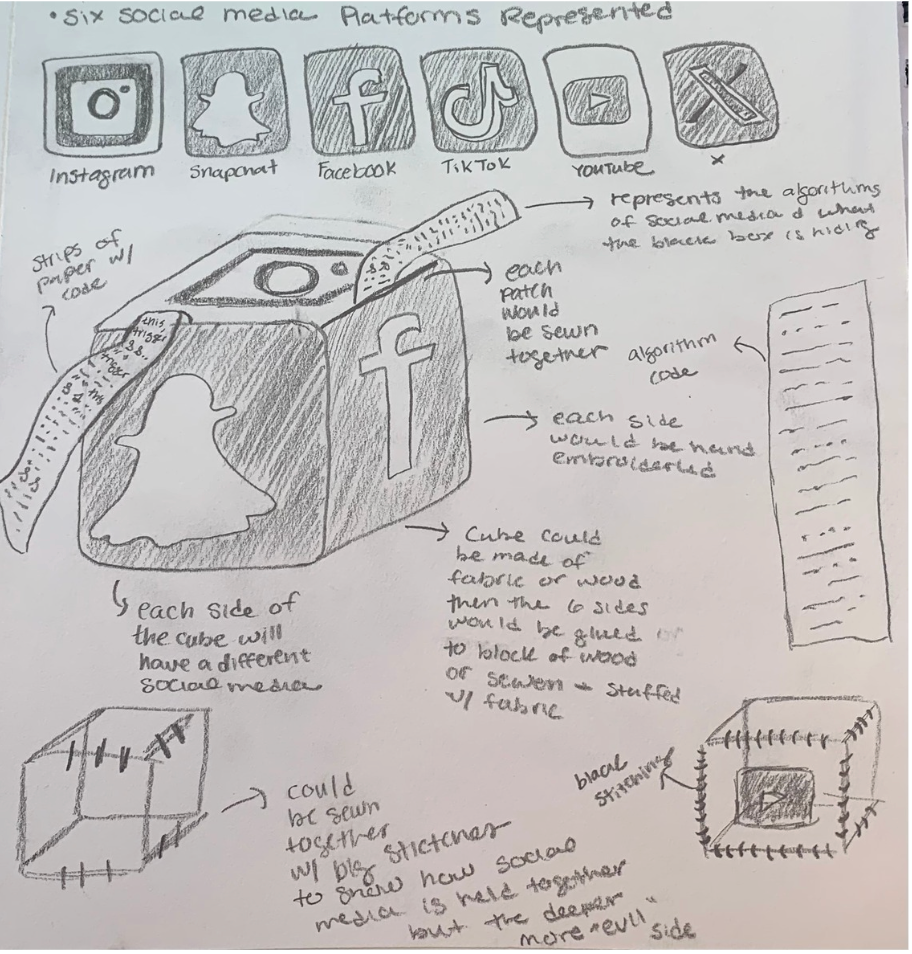 • six social media Platforms Represented
Instagram
Snapchat
Facebook
TikTok
YouTube
X
strips of
paper w/
code
represents the algorithms
of social media & what
the black box is hiding
each
patch
would
be sewn
together
algorithm
code
this
trigger
each side
would be hand
embroiderled
Cube could
be made of
fabric or wood
then the 6 sides
would be glued
to block of wood
or sewen + stuffed
w/ fabric
each side of
the cube will
have a different
social media
could
be sewn
together
w/ big stictches
to show how social
media is held together
but the deeper
more "evil" side
black
stitching